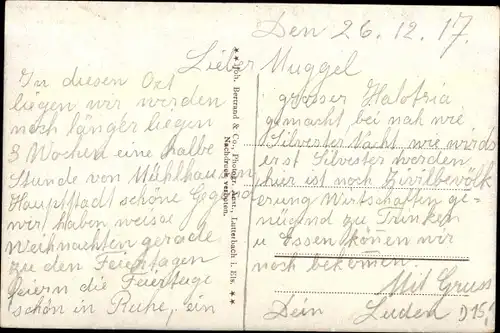 Den 26.12.17.
Lieber Muggel
In diesen Ort
liegen wir werden
noch länger liegen
3 Wochen eine halbe
Stunde von Mühlhausen
Hauptstadt schöne Gegend
wir haben weisse
Weihnachten gerade
zu den Feiertagen
feiern die Feiertage
schön in Ruhe, ein
grosser Halofria
gemacht bei nah wie
Silvester Nacht, wie wirds
erst Silvester werden
hier ist noch Zivilbevölk
erung Wirtschaften ge-
nügend zu Trinken
u Essen können wir
noch bekommen.
Mit Gruss
Dein Luden
D15
** Joh. Bertrand & Co., Photogr. Anst., Lutterbach i. Els. **
Nachdruck verboten.